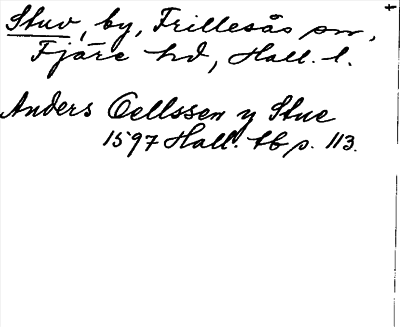 Stuv, by, Frillesås sn,
Fjäre hd, Hall. l.
Anders Oellssen y Stue
1597 Hall. tb p. 113.